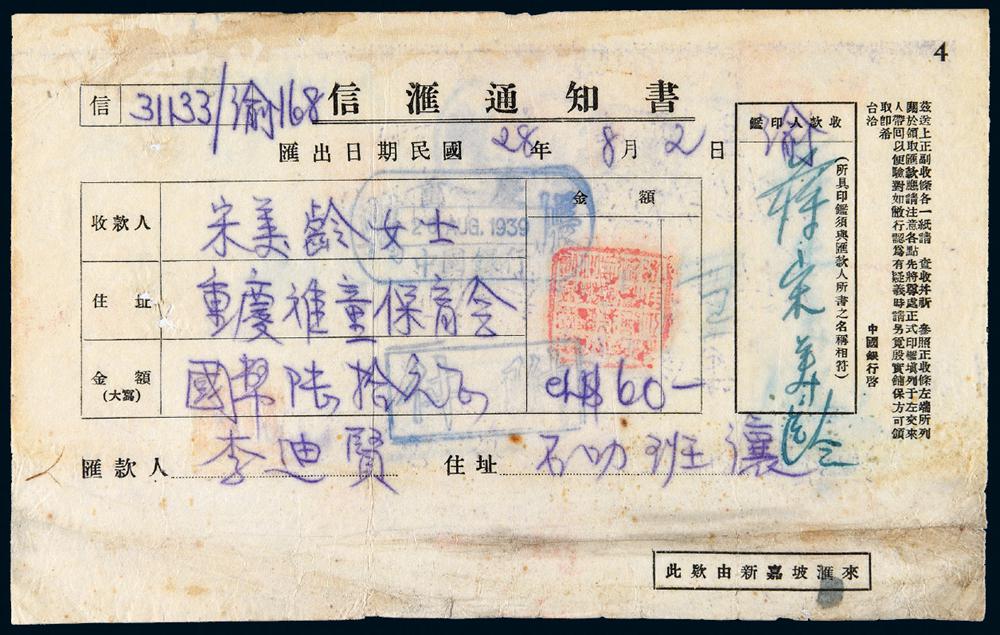 4
信 31133/渝168
信滙通知書
匯出日期民國 28 年 8 月 2 日
收款人 宋美齡女士
金額
住址 重慶難童保育会
金額(大寫) 國幣陸拾元正
CN$60—
匯款人 李迪賢 住址
AUG. 1939
收款人印鑑
(所具印鑑須與匯款人所書之名稱相符)
渝
蔣宋美齡
茲送上正副收條各一紙請 查收并祈 參照正收條左端所列
關於領取匯款應請注意各點先將尊處正式印鑑填列于左交來
人帶回以便驗對如敝行認爲有疑義時請另覓殷實舖保方可領
取即希
台洽
中國銀行啓
此欵由新嘉坡滙來